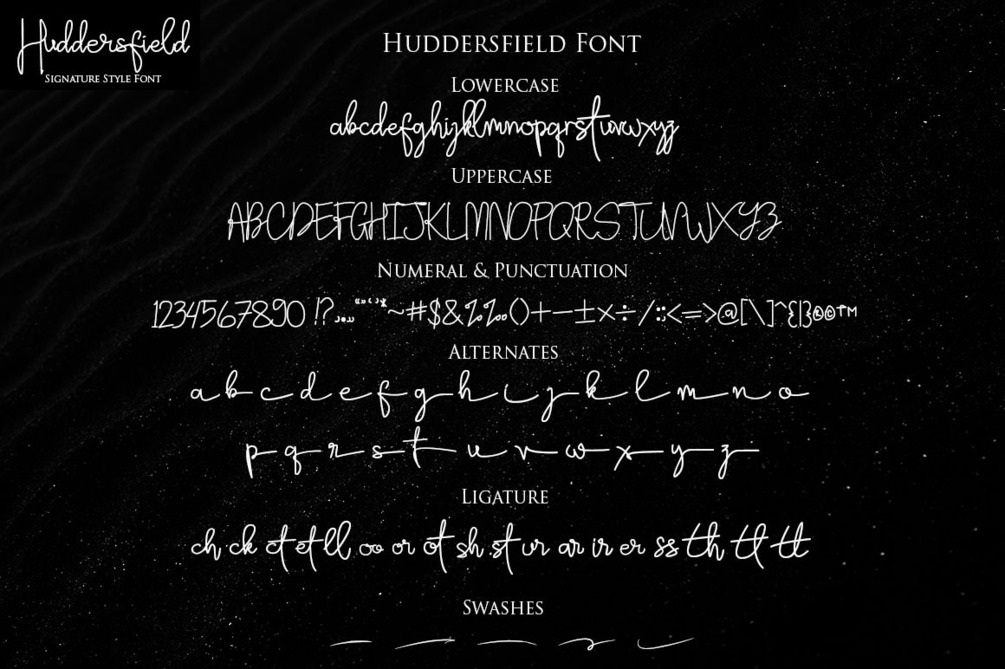 Huddersfield
Signature Style Font
Huddersfield Font
Lowercase
abcdefghijklmnopqrstuvwxyz
Uppercase
ABCDEFGHIJKLMNOPQRSTUVWXYZ
Numeral & Punctuation
1234567890 !?.,„“”‘’*~#$&%‰()+−±×÷/:;<=>@[\]^{|}®©™
Alternates
a b c d e f g h i j k l m n o
p q r s t u v w x y z
Ligature
ch ck ct et ll oo or ot sh st ur ar ir er ss th tl tt
Swashes